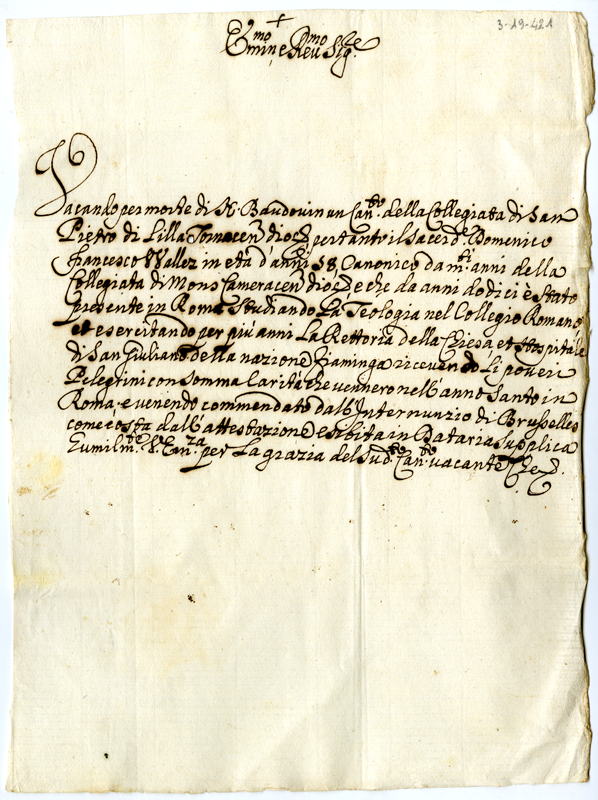 3-19-421
+
Em.mo e Rev.mo Sig.re
Vacando per morte di N. Baudouin un Can.to della Collegiata di San
Pietro di Lilla Tornacen dioc. per tanto il Sacerd.e Domenico
Francesco Wallez in età d'anni 38, Canonico da m.ti anni della
Collegiata di Mons Cameracen dioc. e che da anni dodici è stato
presente in Roma studiando La Teologia nel Collegio Romano
et esercitando per più anni La Rettoria della Chiesa et Hospitale
di San Giuliano della nazione Fiaminga ricevendo Li poveri
Pelegrini con somma Carità che vennero nell'anno Santo in
Roma, e venendo commendato dall'Internunzio di Brusselles
come costa dall'attestazione esibita in Dataria supplica
Eumilm.te V. Em.za per La grazia del sud.o Can.to vacante Che d.